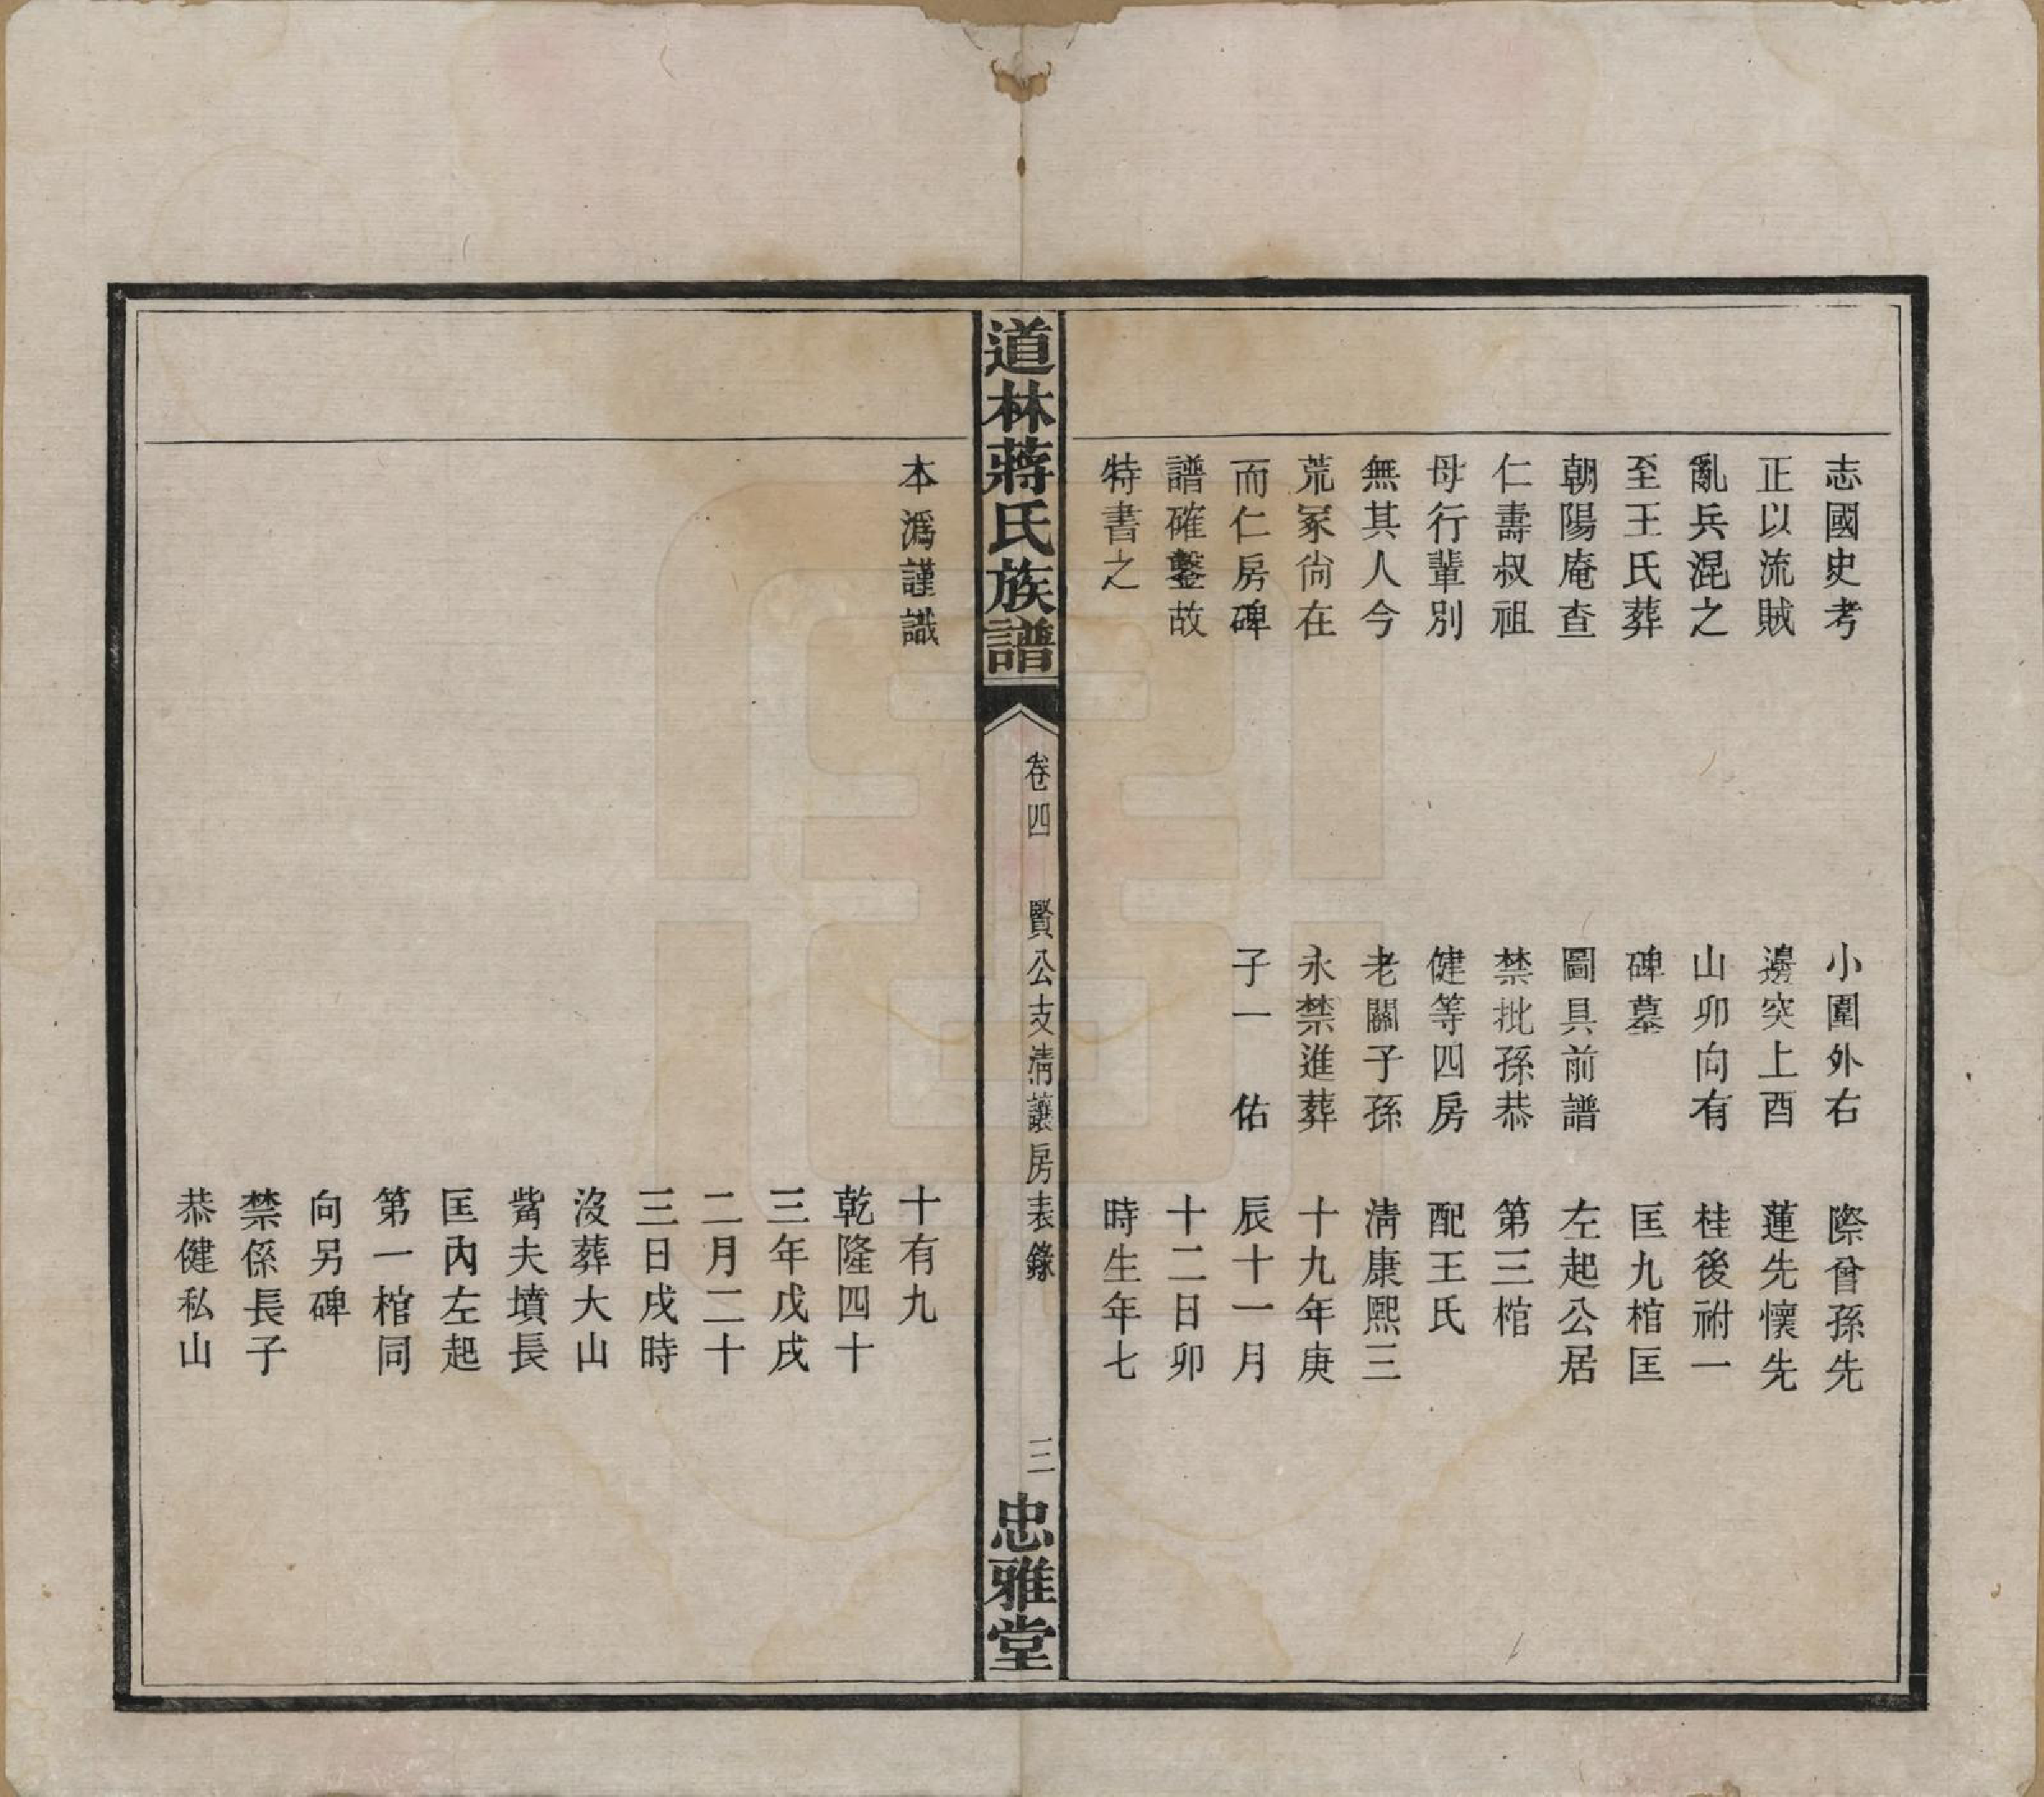 志國史考
正以流賊
亂兵混之
至王氏葬
朝陽庵查
仁壽叔祖
母行輩別
無其人今
荒冢尙在
而仁房碑
譜確鑿故
特書之
小圍外右
邊突上酉
山卯向有
碑墓
圖具前譜
禁批孫恭
健等四房
老關子孫
永禁進葬
子一　佑
際曾孫先
蓮先懷先
桂後祔一
匡九棺匡
左起公居
第三棺
配王氏
淸康熙三
十九年庚
辰十一月
十二日卯
時生年七
道林蔣氏族譜
卷四　賢公支淸讓房表錄
三
忠雅堂
本潙謹識
十有九
乾隆四十
三年戊戌
二月二十
三日戌時
沒葬大山
觜夫墳長
匡內左起
第一棺同
向另碑
禁係長子
恭健私山